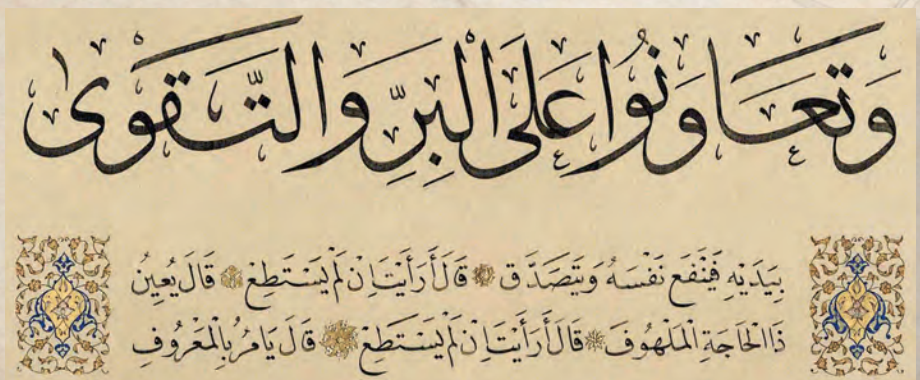 وَتَعَاوَنُوا عَلَى الْبِرِّ وَالتَّقْوَى
بِيَدَيْهِ فَيَنْفَع نَفْسَهُ وَيَتَصَدَّق قَالَ أَرَأَيْتَ اِنْ لَمْ يَسْتَطِعْ قَالَ يُعِينُ
ذَا الْحَاجَةِ الْمَلْهُوفَ قَالَ أَرَأَيْتَ اِنْ لَمْ يَسْتَطِعْ قَالَ يَامُرُ بِالْمَعْرُوفِ